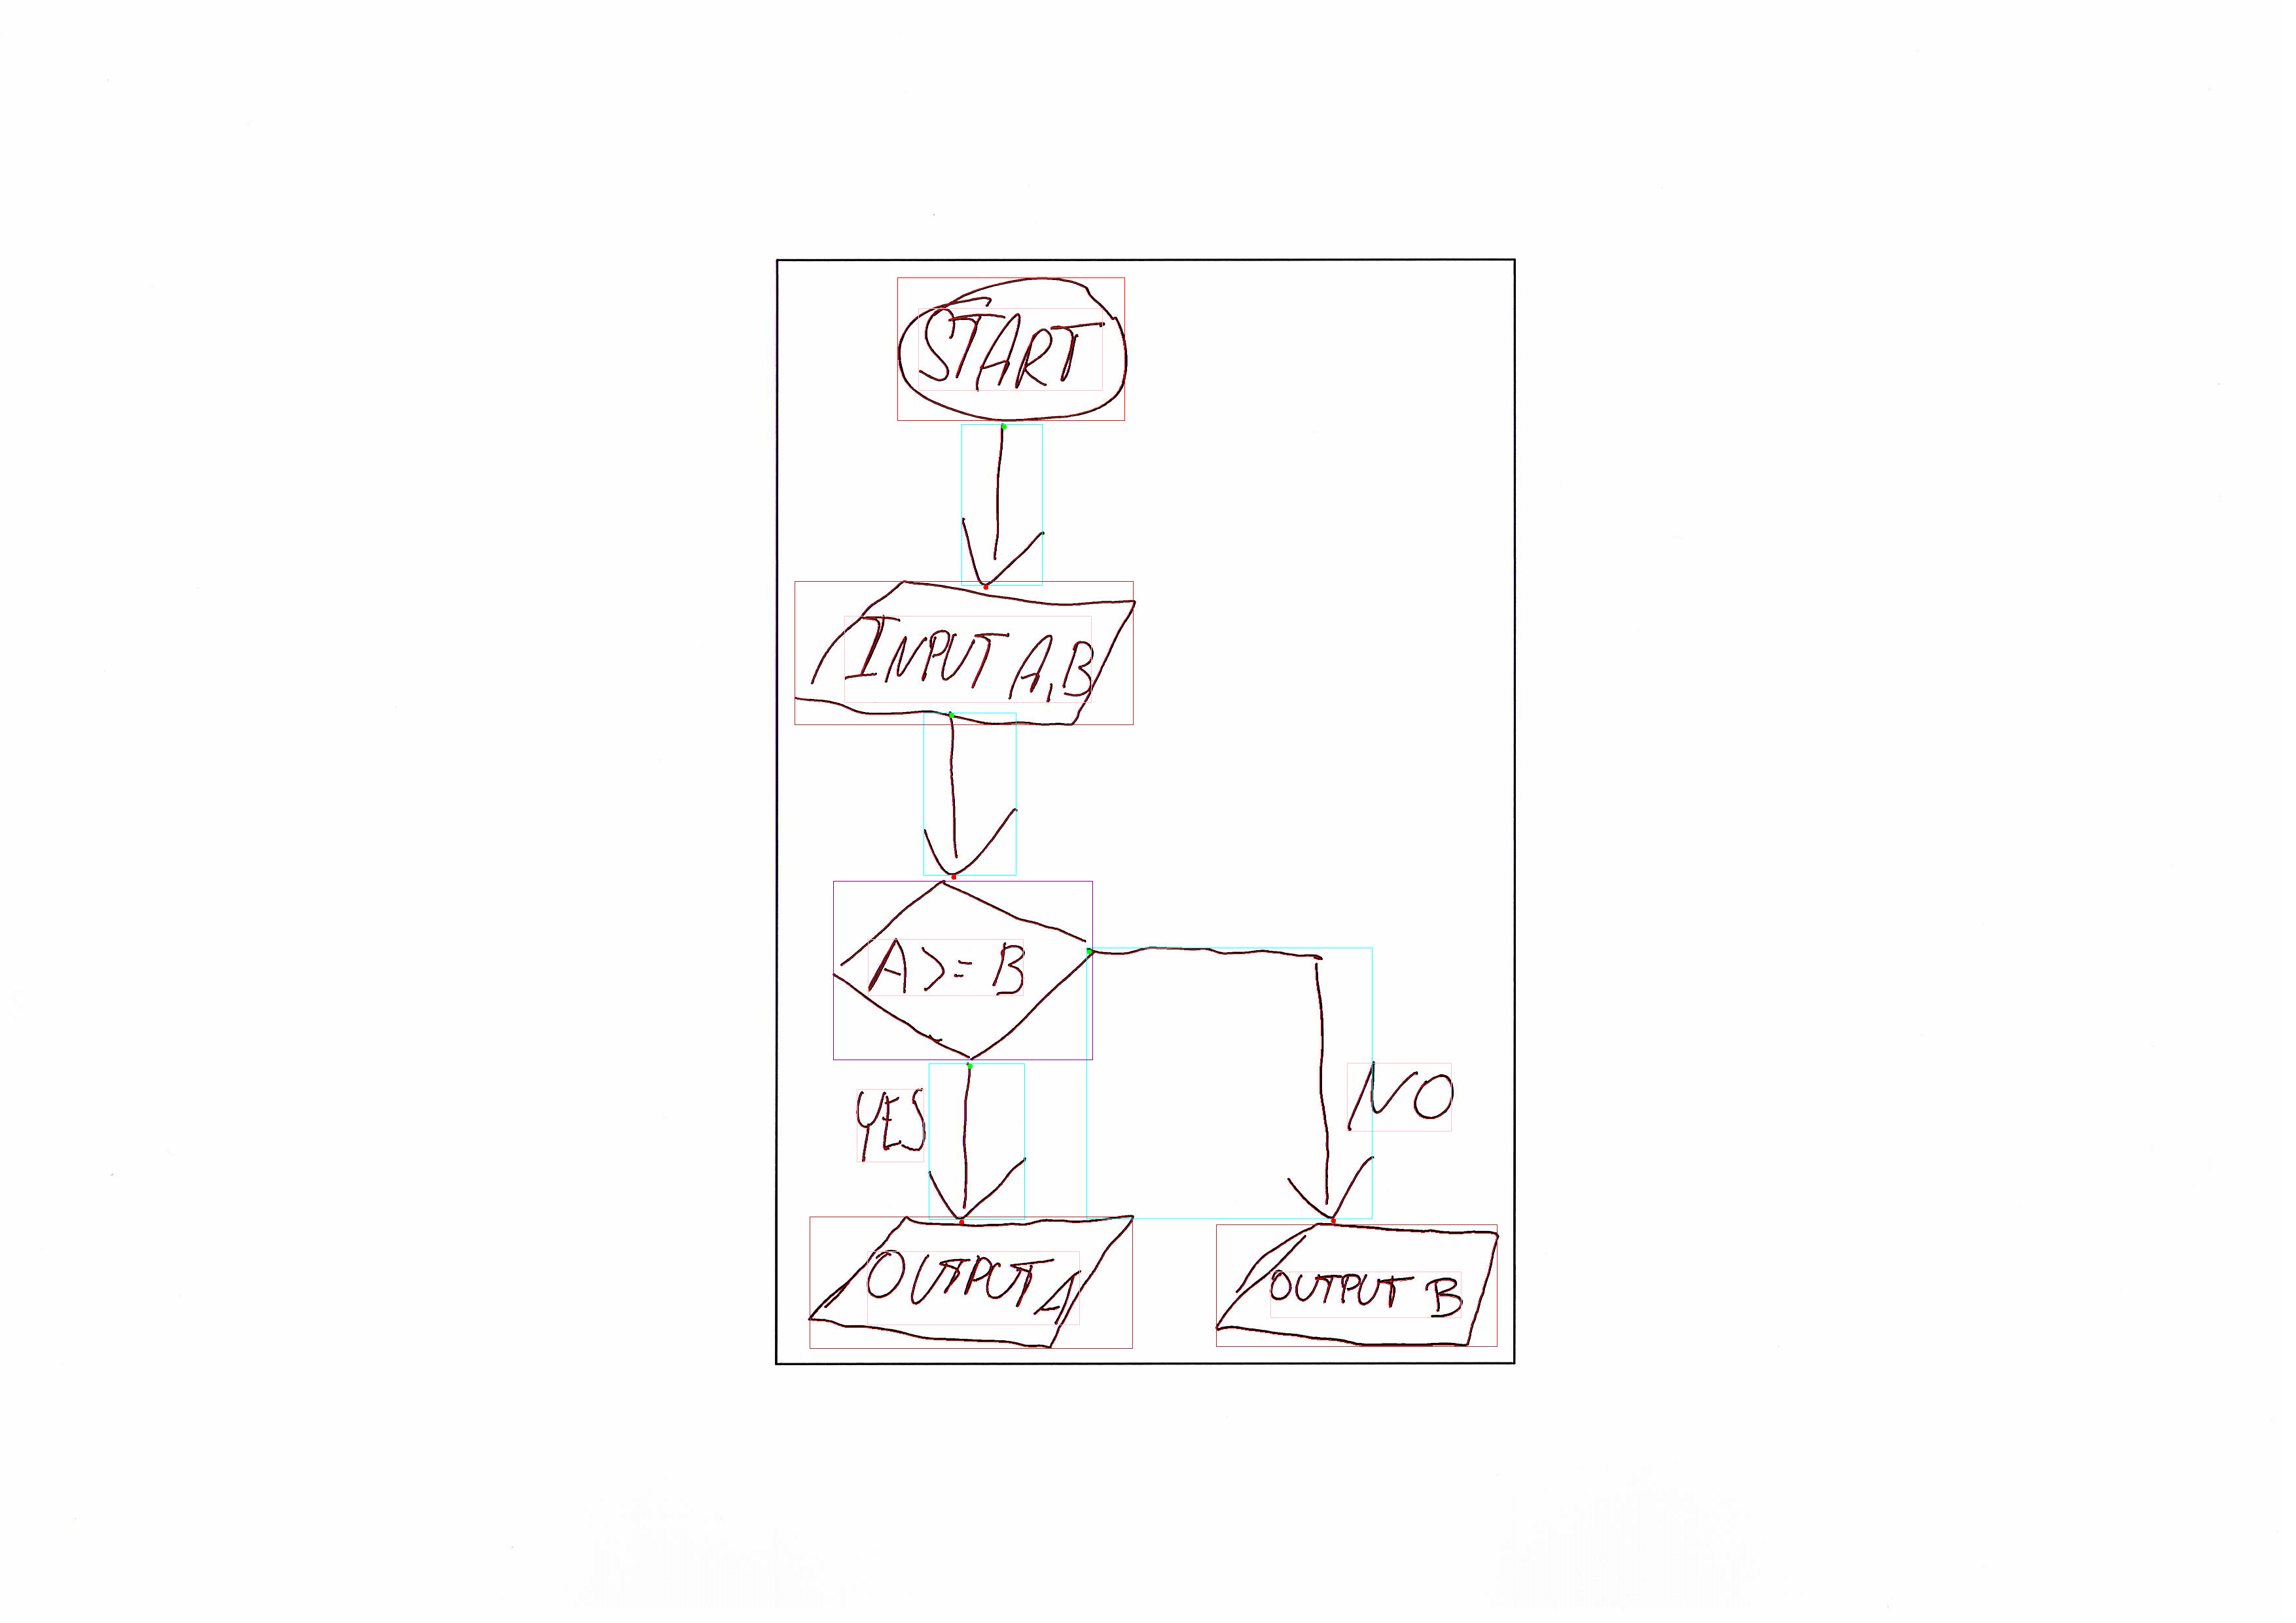 START
INPUT A,B
A >= B
YES
NO
OUTPUT A
OUTPUT B